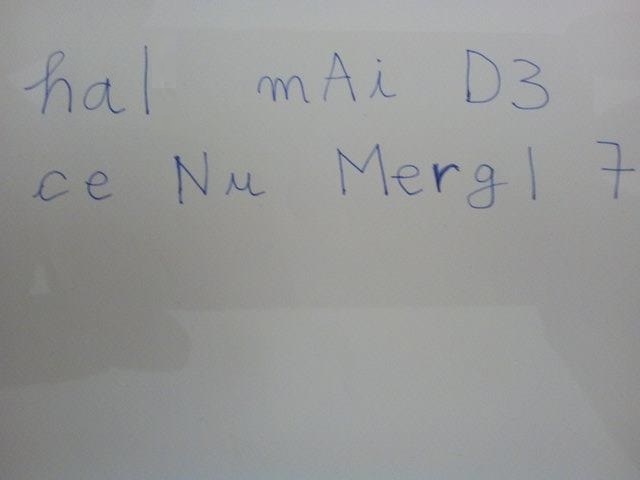 hal mAi D3
ce Nu Mergl 7